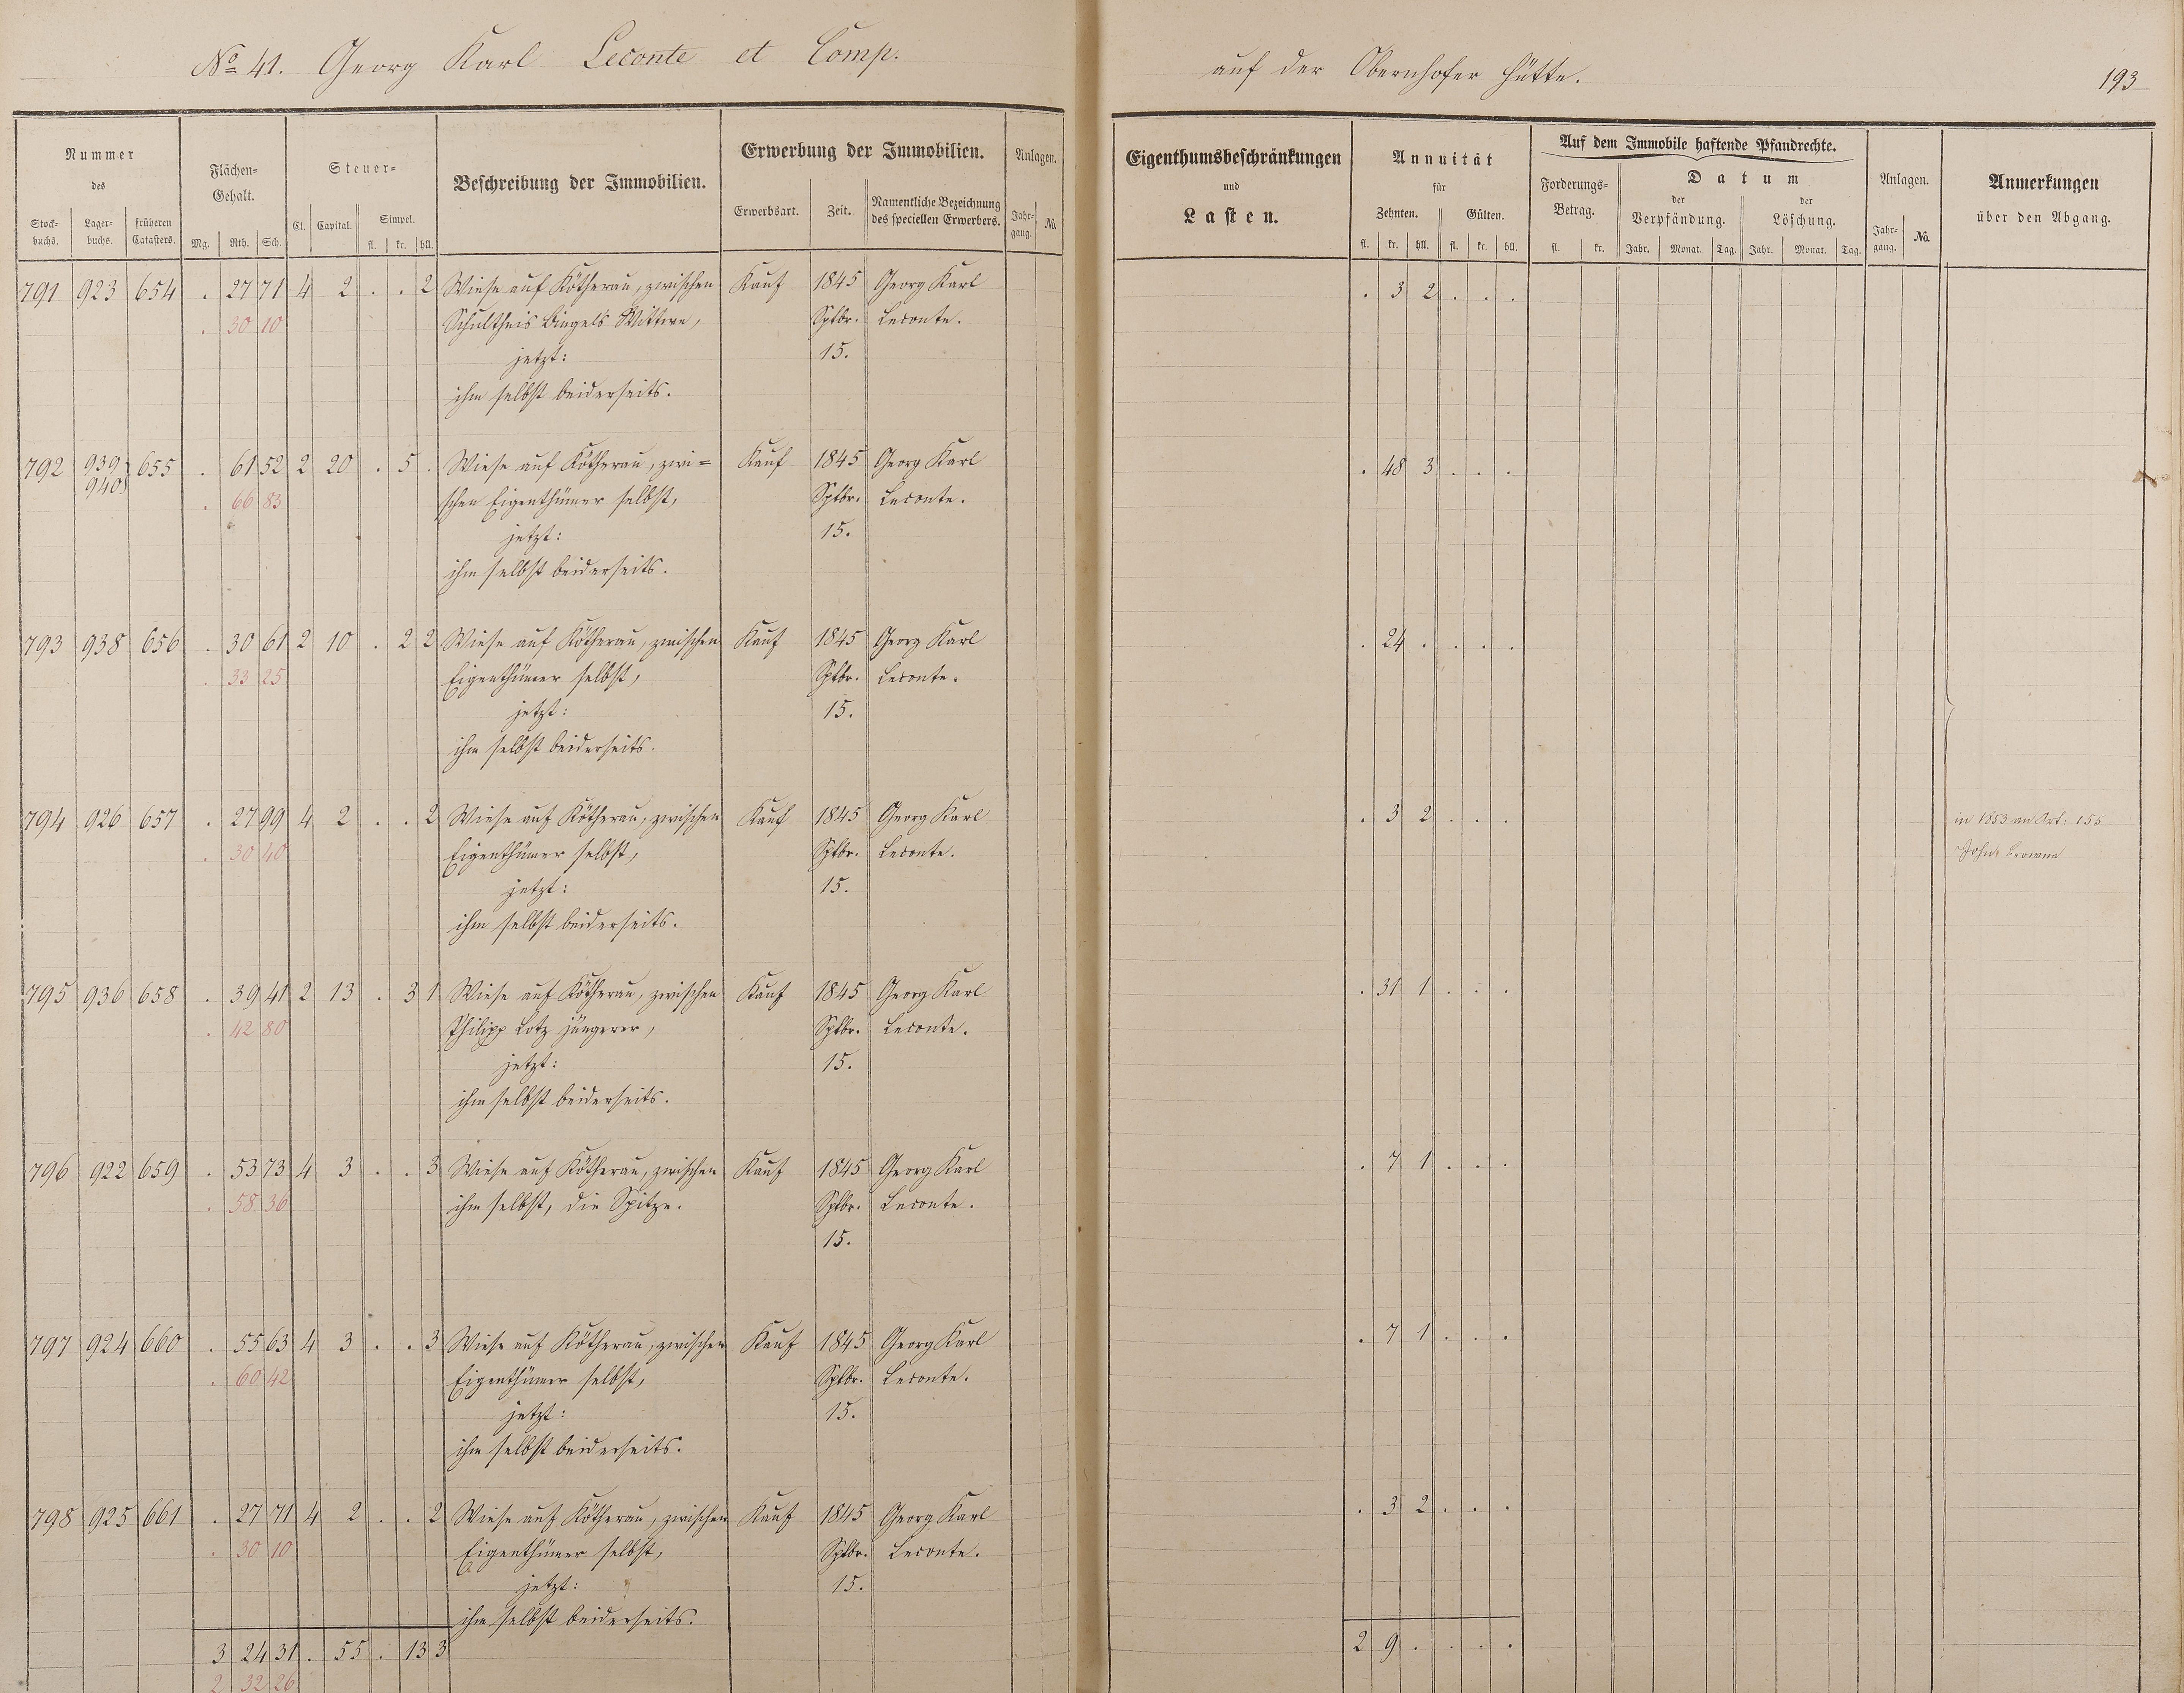 No 41. Georg Karl Leconte et Comp.
auf der Obernhofer Hütte.
193
Nummer
des
Stock-
buchs.
Lager-
buchs.
früheren
Catasters.
Flächen-
Gehalt.
Mg.
Rth.
Sch.
Steuer-
Cl.
Capital.
Simpel.
fl.
kr.
hll.
Beschreibung der Immobilien.
Erwerbung der Immobilien.
Erwerbsart.
Zeit.
Namentliche Bezeichnung
des speciellen Erwerbers.
Anlagen.
Jahr-
gang.
No.
Eigenthumsbeschränkungen
und
Lasten.
Annuität
für
Zehnten.
Gülten.
fl. kr. hll. fl. kr. hll.
Auf dem Immobile haftende Pfandrechte.
Forderungs-
Betrag.
fl. kr.
Datum
der
Verpfändung.
der
Löschung.
Jahr. Monat. Tag. Jahr. Monat. Tag.
Anlagen.
Jahr-
gang.
No.
Anmerkungen
über den Abgang.
791 923 654 . 27 71 4 2 . . 2 Wiese auf Kötherau, zwischen Kauf 1845 Georg Karl . 3 2 . . .
. 30 10 Schultheis Bingels Wittwe, Sptbr. Leconte.
jetzt: 15.
ihm selbst beiderseits.
792 939 940 655 . 61 52 2 20 . 5 . Wiese auf Kötherau, zwi= Kauf 1845 Georg Karl . 48 3 . . .
. 66 83 schen Eigenthümer selbst, Sptbr. Leconte.
jetzt: 15.
ihm selbst beiderseits.
793 938 656 . 30 61 2 10 . 2 2 Wiese auf Kötherau, zwischen Kauf 1845 Georg Karl . 24 . . . .
. 33 25 Eigenthümer selbst, Sptbr. Leconte.
jetzt: 15.
ihm selbst beiderseits.
794 926 657 . 27 99 4 2 . . 2 Wiese auf Kötherau, zwischen Kauf 1845 Georg Karl . 3 2 . . . in 1853 an Art: 155
. 30 40 Eigenthümer selbst, Sptbr. Leconte. John Browne
jetzt: 15.
ihm selbst beiderseits.
795 936 658 . 39 41 2 13 . 3 1 Wiese auf Kötherau, zwischen Kauf 1845 Georg Karl . 31 1 . . .
. 42 80 Philipp Lotz jüngerer, Sptbr. Leconte.
jetzt: 15.
ihm selbst beiderseits.
796 922 659 . 53 73 4 3 . . 3 Wiese auf Kötherau, zwischen Kauf 1845 Georg Karl . 7 1 . . .
. 58 36 ihm selbst, die Spitze. Sptbr. Leconte.
15.
797 924 660 . 55 63 4 3 . . 3 Wiese auf Kötherau, zwischen Kauf 1845 Georg Karl . 7 1 . . .
. 60 42 Eigenthümer selbst, Sptbr. Leconte.
jetzt: 15.
ihm selbst beiderseits.
798 925 661 . 27 71 4 2 . . 2 Wiese auf Kötherau, zwischen Kauf 1845 Georg Karl . 3 2 . . .
. 30 10 Eigenthümer selbst, Sptbr. Leconte.
jetzt: 15.
ihm selbst beiderseits.
3 24 31 . 55 . 13 3 2 9 . . . .
2 32 26